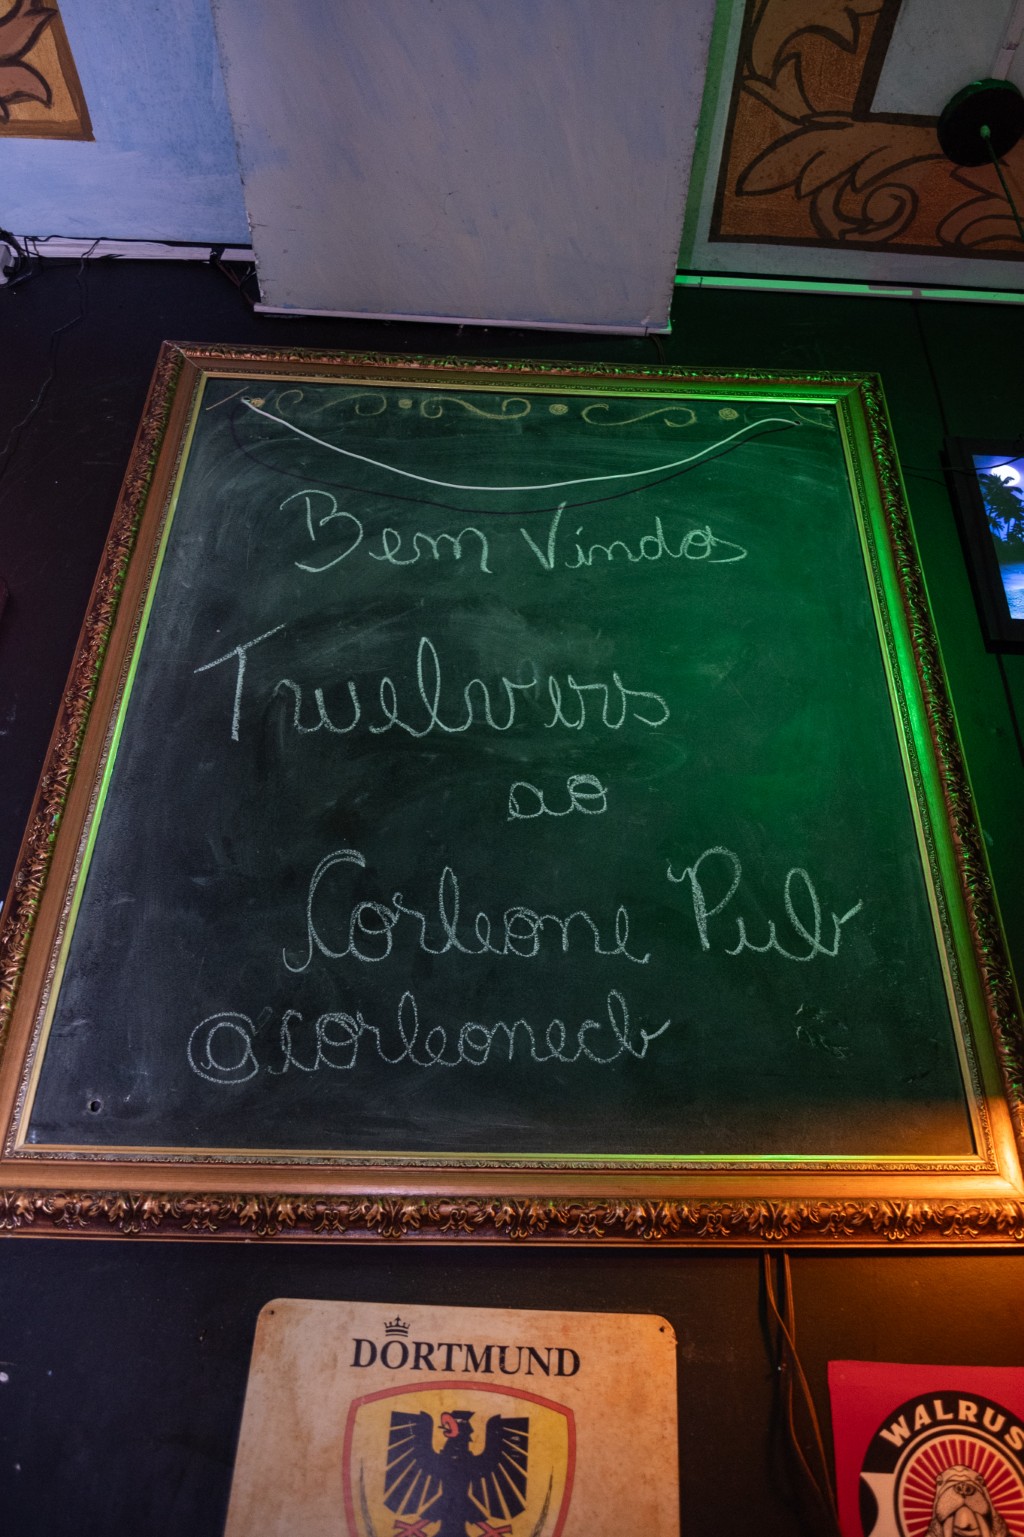 Bem Vindos
Twelvers
ao
Corleone Pub
@corleonecb
DORTMUND
WALRUS